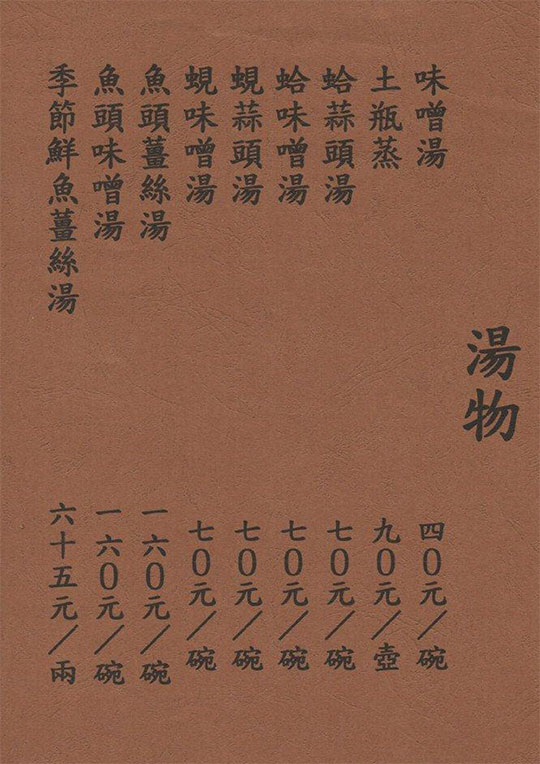 湯物
味噌湯
四0元/碗
土瓶蒸
九0元/壺
蛤蒜頭湯
七0元/碗
蛤味噌湯
七0元/碗
蜆蒜頭湯
七0元/碗
蜆味噌湯
七0元/碗
魚頭薑絲湯
一六0元/碗
魚頭味噌湯
一六0元/碗
季節鮮魚薑絲湯
六十五元/兩